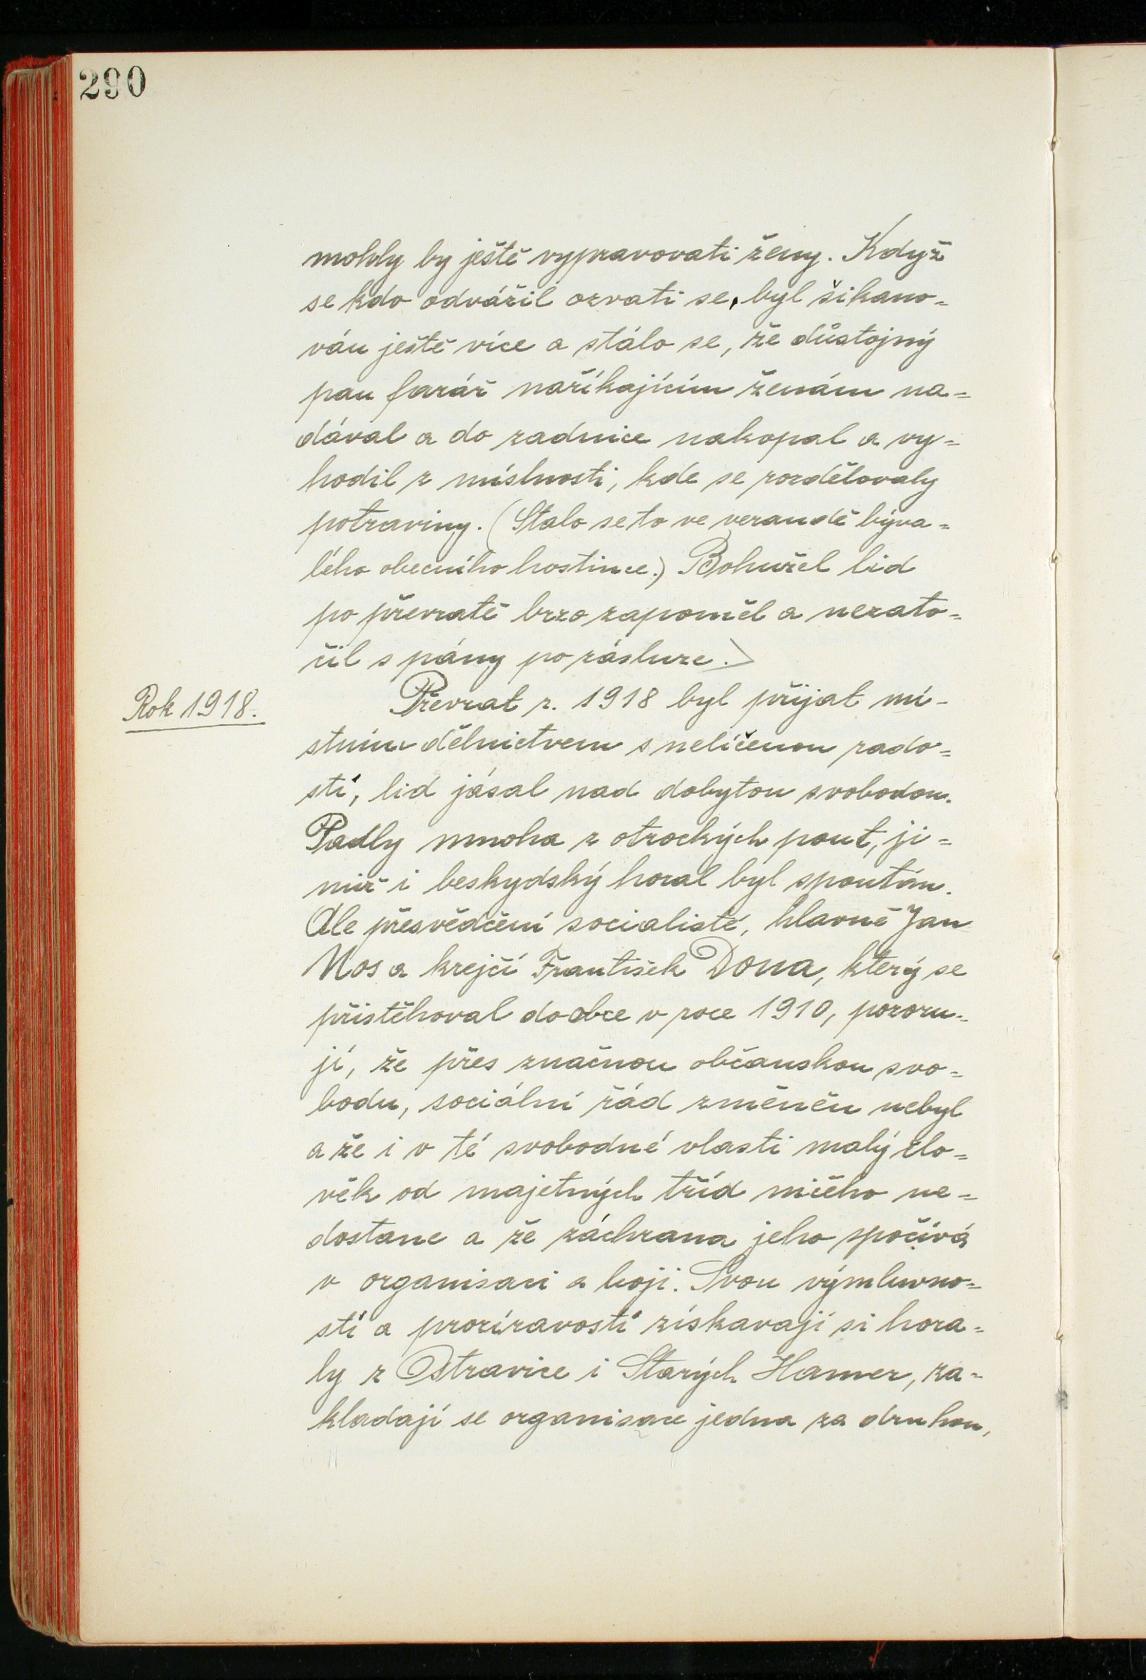 290
mohly by ještě vypravovati ženy. Když
se kdo odvážil ozvati se, byl šikano-
ván ještě více a stálo se, že důstojný
pan farář naříkajícím ženám na-
dával a do zadnice nakopal a vy-
hodil z místnosti, kde se rozdělovaly
potraviny. (Stalo se to ve verandě býva-
lého obecního hostince.) Bohužel lid
po převratě brzo zapoměl a nezato-
čil s pány po zásluze.>
Rok 1918.
Převrat r. 1918 byl přijat mí-
stním dělnictvem s nelíčenou rado-
stí, lid jásal nad dobytou svobodou.
Padly mnoha z otrockých pout, ji-
miž i beskydský horal byl spoután.
Ale přesvědčení socialisté, hlavně Jan
Nos a krejčí František Dona, který se
přistěhoval do obce v roce 1910, pozoru-
jí, že přes značnou občanskou svo-
bodu, sociální řád změněn nebyl
a že i v té svobodné vlasti malý člo-
věk od majetných tříd ničeho ne-
dostane a že záchrana jeho spočívá
v organisaci a boji. Svou výmluvno-
stí a prozíravostí získavají si hora-
ly z Ostravice i Starých Hamer, za-
kladají se organisace jedna za druhou,